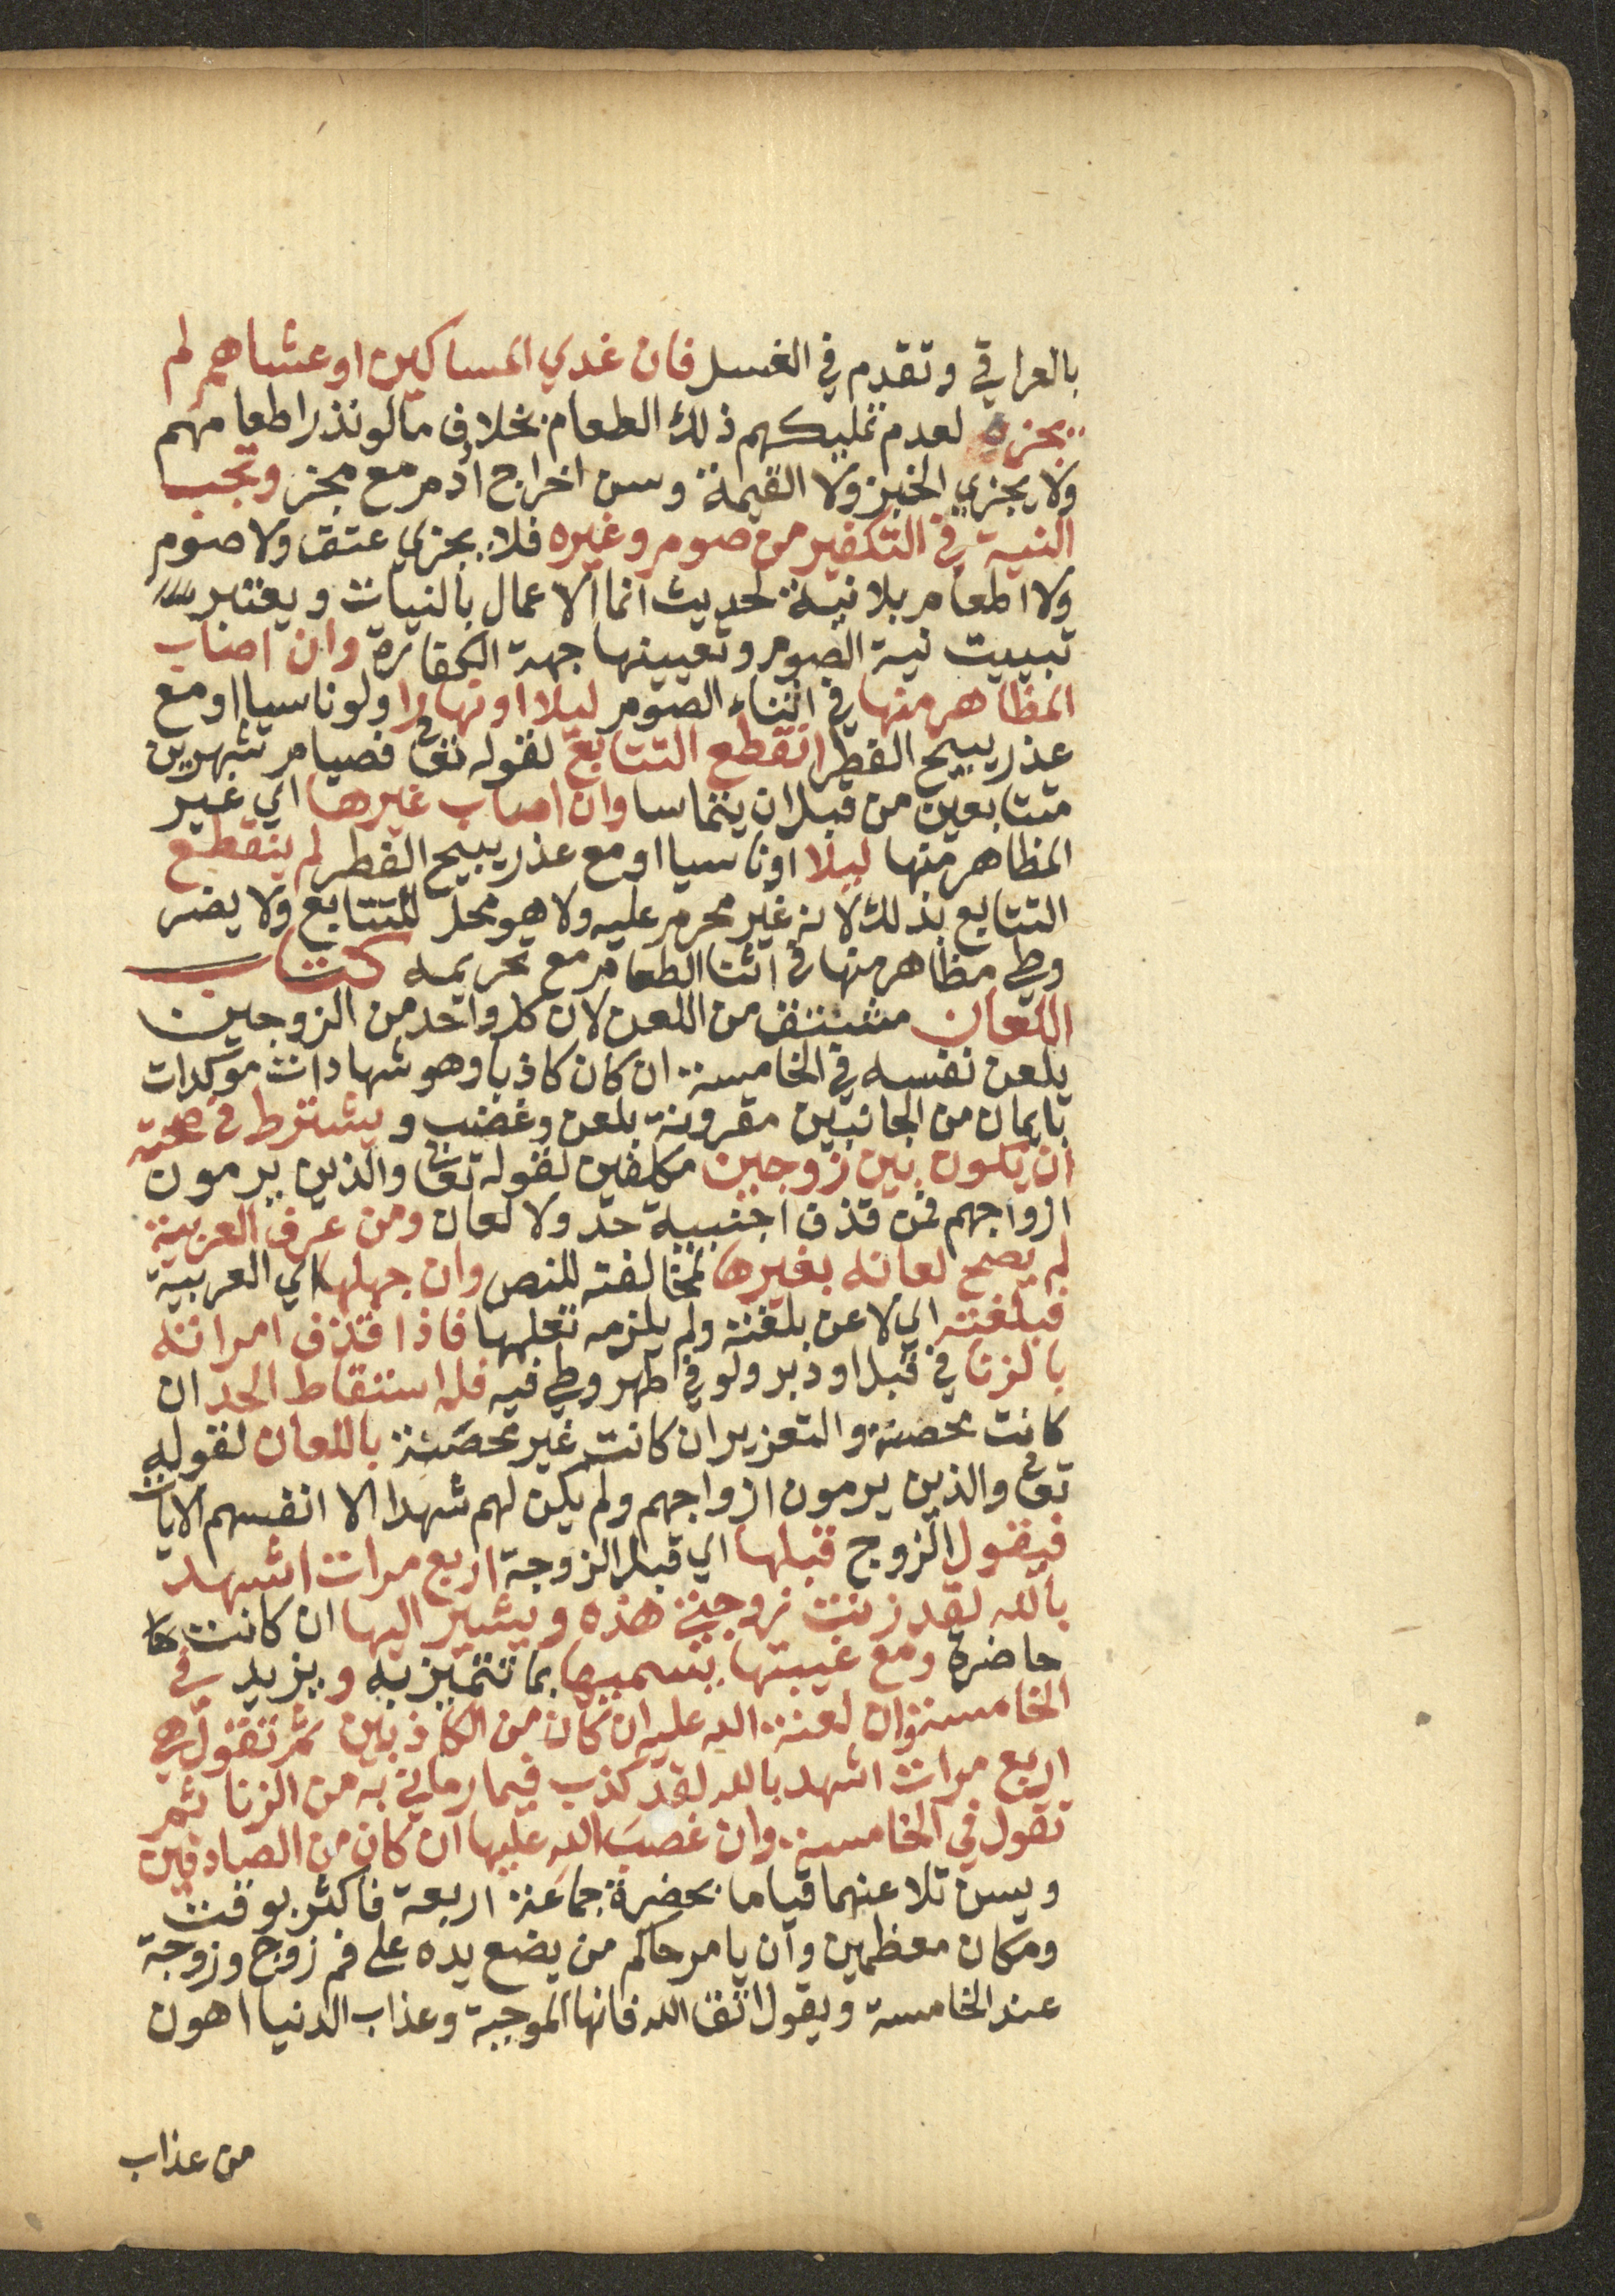 بالعراقي وتقدم في الغسل فان غدي المساكين او عشاهم لم
يجزه لعدم تمليكهم ذلك الطعام بخلاف ما لو نذر اطعامهم
ولا يجزي الخبز ولا القيمة وسن اخراج أدم مع مجز وتجب
النية في التكفير من صوم وغيره فلا يجزي عتق ولا صوم
ولا اطعام بلا نية لحديث انما الاعمال بالنيات ويعتبر
تبييت نية الصوم وتعيينها جهة الكفارة وان اصاب
المظاهر منها في اثناء الصوم ليلا او نهارا ولو ناسيا او مع
عذر يبيح الفطر انقطع التتابع لقوله تعالى فصيام شهرين
متتابعين من قبل ان يتماسا وان اصاب غيرها اي غير
المظاهر منها ليلا او ناسيا او مع عذر يبيح الفطر لم ينقطع
التتابع بذلك لانه غير محرم عليه ولا هو محل للتتابع ولا يضر
وطي مظاهر منها في اثنا الطعام مع تحريمه كتاب
اللعان مشتق من اللعن لان كل واحد من الزوجين
يلعن نفسه في الخامسة ان كان كاذبا وهو شهادات موكدات
بايمان من الجانبين مقرونة بلعن وغضب ويشترط في صحته
ان يكون بين زوجين مكلفين لقوله تعالى والذين يرمون
ازواجهم فمن قذف اجنبية حد ولا لعان ومن عرف العربية
لم يصح لعانه بغيرها لمخالفته للنص وان جهلها اي العربية
فبلغته اي لاعن بلغته ولم يلزمه تعلمها فاذا قذف امراته
بالزنا في قبل او دبر ولو في طهر وطي فيه فله اسقاط الحد ان
كانت محصنة والتعزير ان كانت غير محصنة باللعان لقوله
تعالى والذين يرمون ازواجهم ولم يكن لهم شهدا الا انفسهم الايات
فيقول الزوج قبلها اي قبل الزوجة اربع مرات اشهد
بالله لقد زنت زوجتي هذه ويشير اليها ان كانت
حاضرة ومع غيبتها يسميها بما تتميز به ويزيد في
الخامسة وان لعنة الله عليه ان كان من الكاذبين ثم تقول هي
اربع مرات اشهد بالله لقد كذب فيما رماني به من الزنا ثم
تقول في الخامسة وان غضب الله عليها ان كان من الصادقين
ويسن تلاعنهما قياما بحضرة جماعة اربعة فاكثر بوقت
ومكان معظمين وان يامر حاكم من يضع يده على فم زوج وزوجة
عند الخامسة ويقول اتق الله فانها الموجبة وعذاب الدنيا اهون
من عذاب